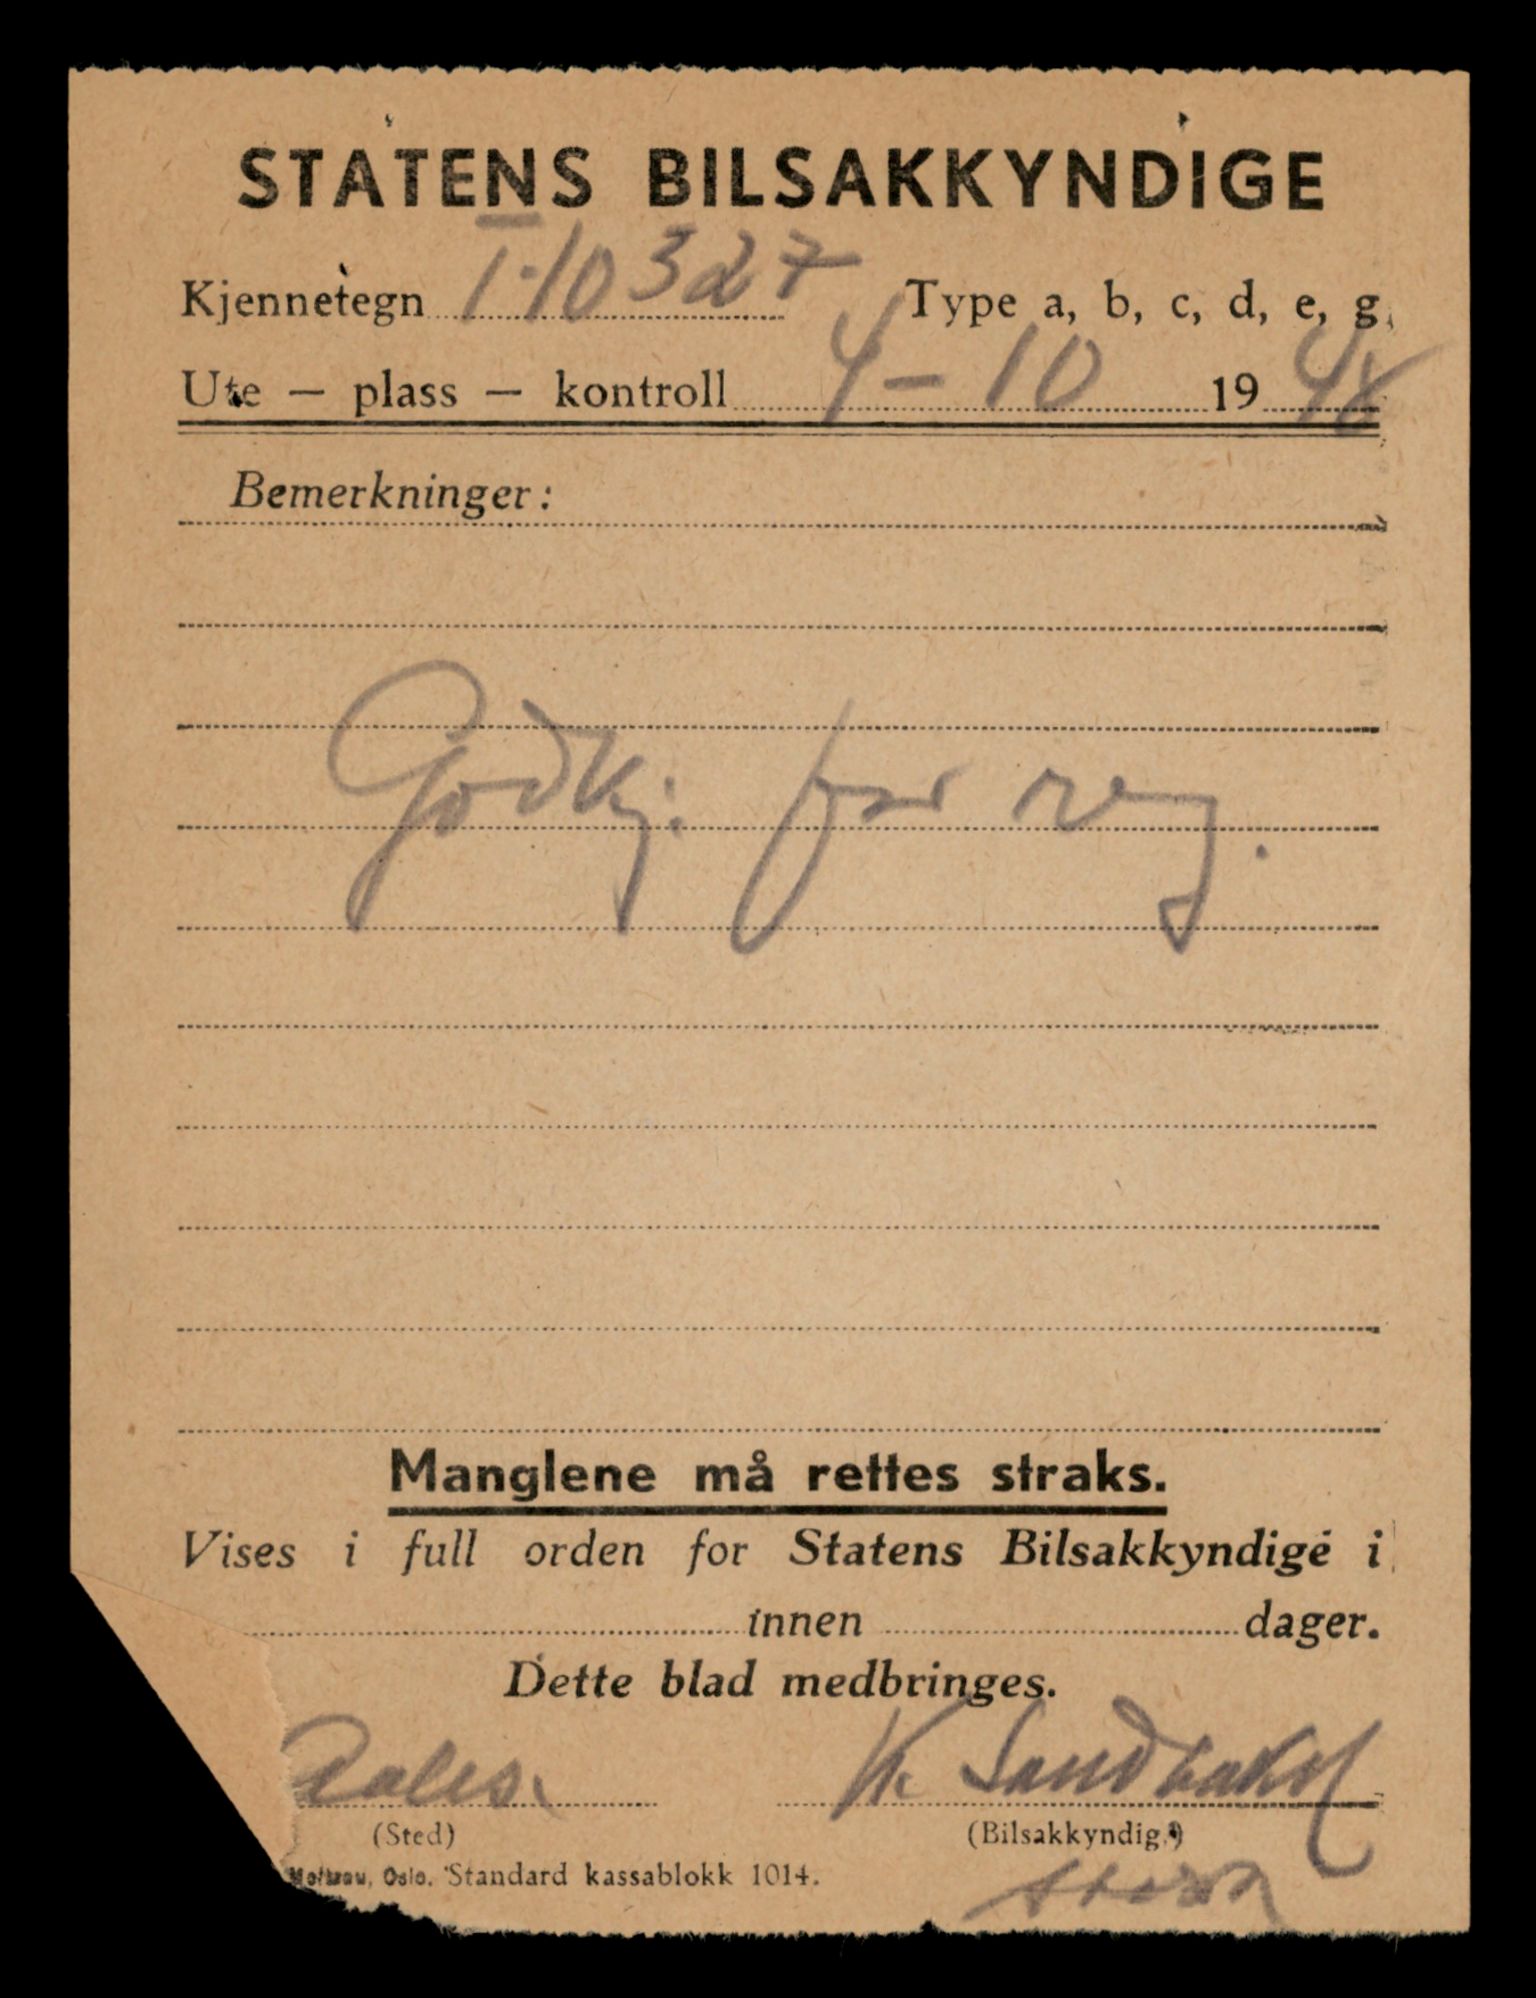 STATENS BILSAKKYNDIGE
Kjennetegn T-10327 Type a, b, c, d, e, g,
Ute — plass — kontroll 4-10 1948
Bemerkninger:
Godkj. for reg.
Manglene må rettes straks.
Vises i full orden for Statens Bilsakkyndige i
innen dager.
Dette blad medbringes.
Aales. K. Sandbakk
(Sted) (Bilsakkyndig)
Oslo. Standard kassablokk 1014.